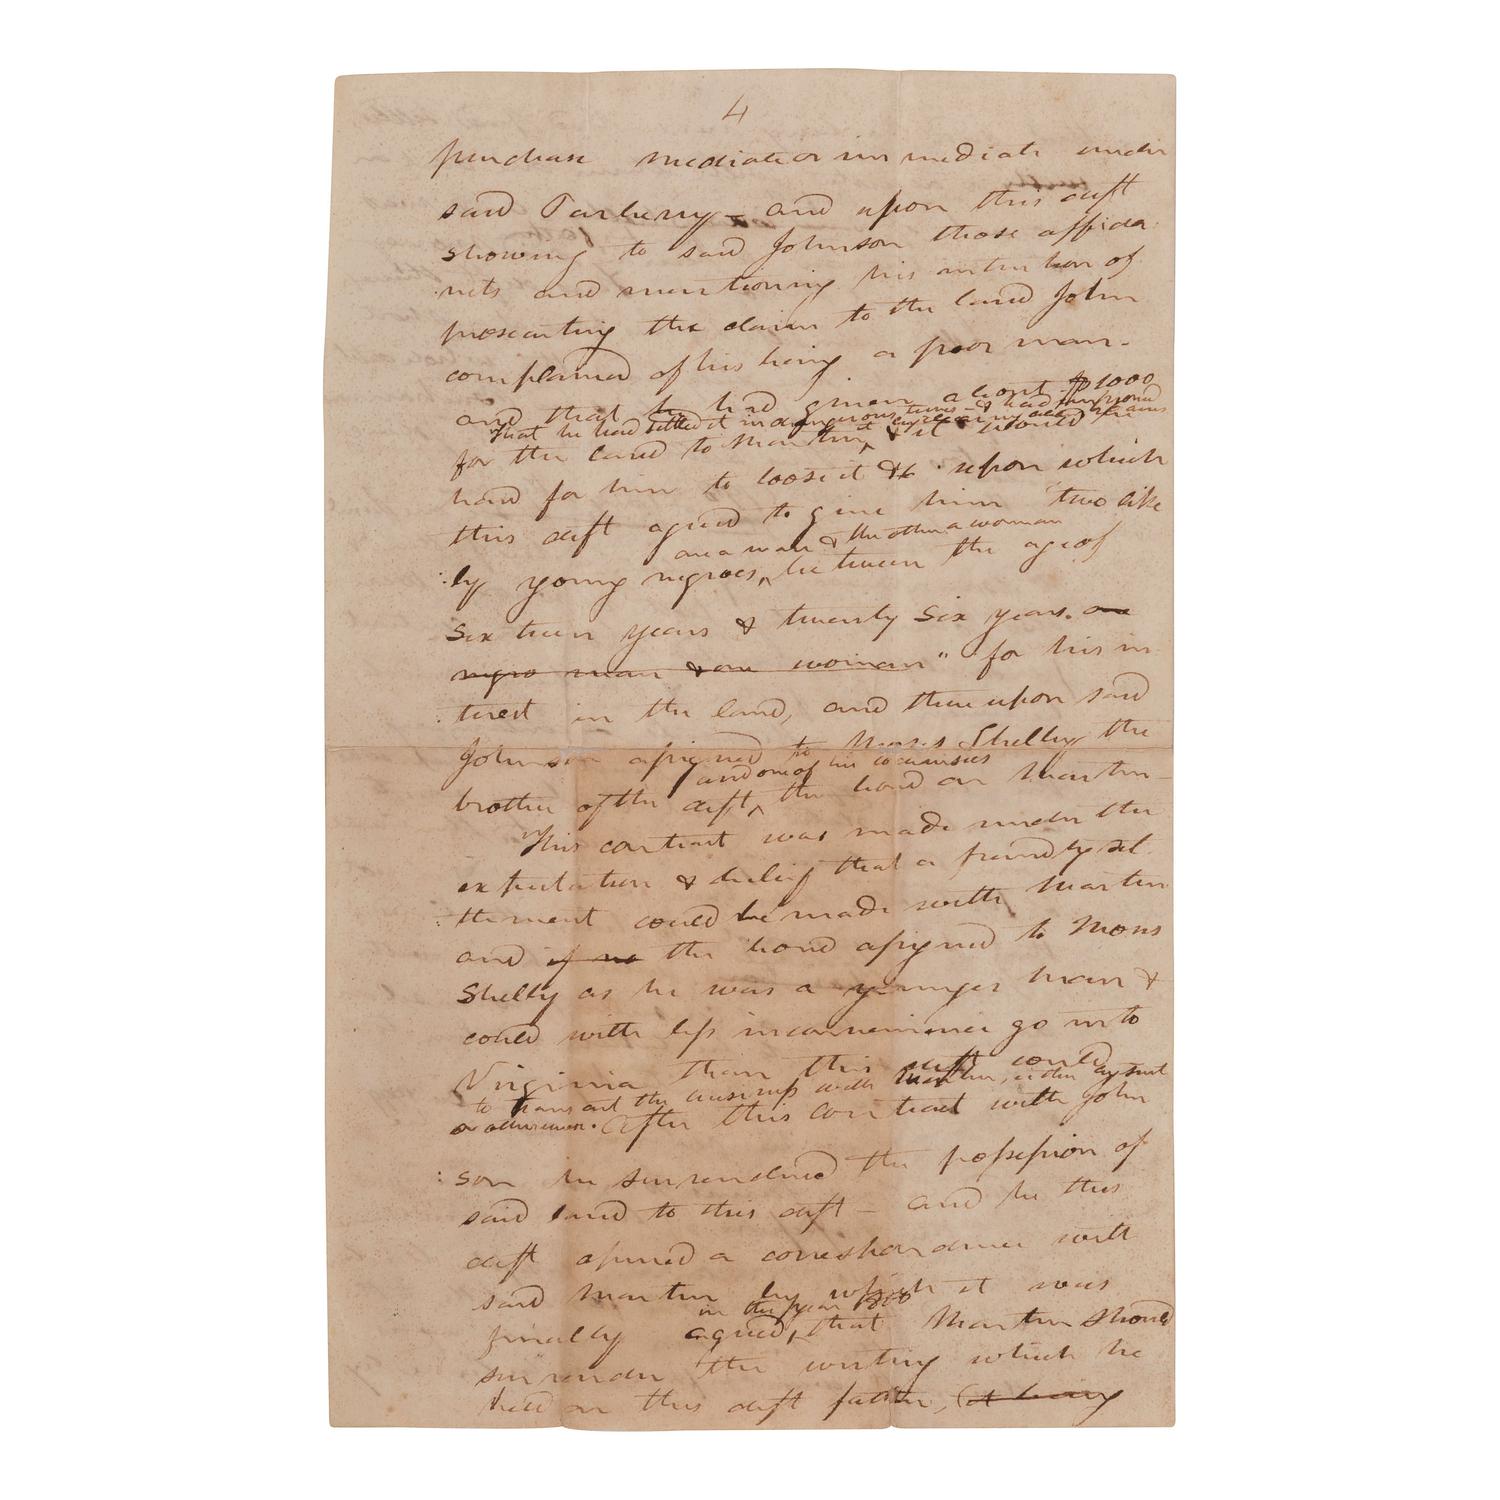 4
purchase mediate or immediate under
said Tarberry – and upon this deft
showing to said Johnson those affida
vits and mentioning his intention of
prosecuting the claim to the land John
complained of his being a poor man.
and that he had given about $1000
that he had settled it in dangerous times – & had
for the land to Martin, & it would be
hard for him to loose it &c upon which
this deft agreed to give him "two like
one a man & the other a woman
:ly young negroes, between the age of
six teen years & twenty six years. one
negro man & one woman" for his in
:terest in the land, and thereupon said
Johnson assigned to Moses Shelby the
and one of his
brother of the deft, the bond on Martin –
This contract was made under the
expectation & belief that a friendly set
:tlement could be made with Martin
and if no the bond assigned to Moses
Shelby as he was a younger man &
could with less inconvenience go in to
Virginia than this deft could
to transact the business with Martin, either by suit
or otherwise. After this contract with John
:son he surrendered the possession of
said land to this deft – and he this
deft opened a correspondence with
said Martin by which it was
in the year 1808
finally agreed, that Martin should
surrender the writing which he
held on this deft father, (it being